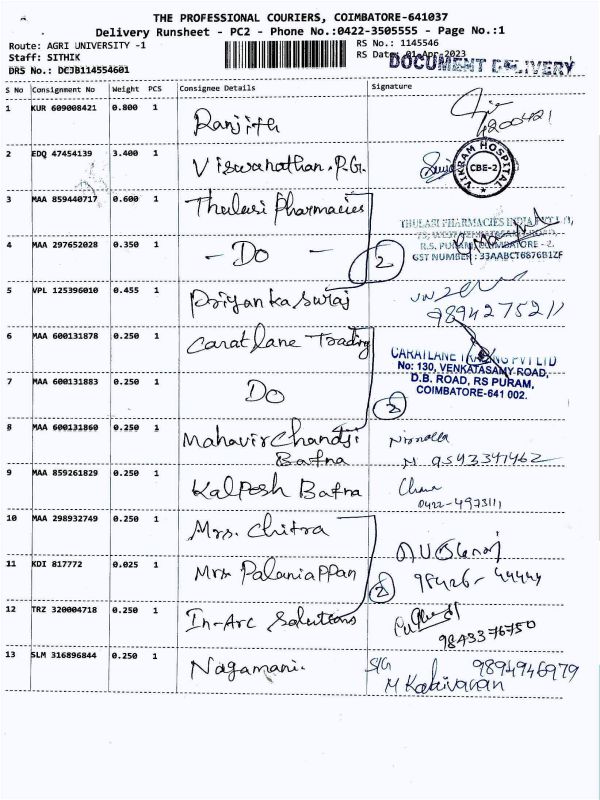 THE PROFESSIONAL COURIERS, COIMBATORE-641037
Delivery Runsheet - PC2 - Phone No.:0422-3505555 - Page No.:1
Route: AGRI UNIVERSITY -1
Staff: SITHIK
DRS No.: DCJB114554601
RS No.: 1145546
RS Date: 01-Apr-2023
DOCUMENT DELIVERY
S No Consignment No Weight PCS Consignee Details Signature
1 KUR 609008421 0.800 1 Ranjith
2 EDQ 47454139 3.400 1 Viswanathan.R.G.
VIKRAM HOSPITAL
CBE-2
3 MAA 859440717 0.600 1 Thulasi Pharmacies
THULASI PHARMACIES INDIA PVT LTD,
4 MAA 297652028 0.350 1 - Do - 2
R.S. PURAM, COIMBATORE - 2.
GST NUMBER : 33AABCT6876B1ZF
5 VPL 125396010 0.455 1 Priyanka Suraj
9894275211
6 MAA 600131878 0.250 1 Caratlane Trading
CARATLANE TRADING PVT LTD
No: 130, VENKATASAMY ROAD,
7 MAA 600131883 0.250 1 Do
D.B. ROAD, RS PURAM,
COIMBATORE-641 002.
8 MAA 600131860 0.250 1 Mahavir Chandji
Bafna
Nirmalla
M 9543341462
9 MAA 859261829 0.250 1 Kalpesh Bafna
0422-4973111
10 MAA 298932749 0.250 1 Mrs. Chitra
11 KDI 817772 0.025 1 Mrs Palaniappan 2
98426-44444
12 TRZ 320004718 0.250 1 In-Arc Solutions
9843376750
13 SLM 316896844 0.250 1 Nagamani.
9894946979
M Kalaivanan